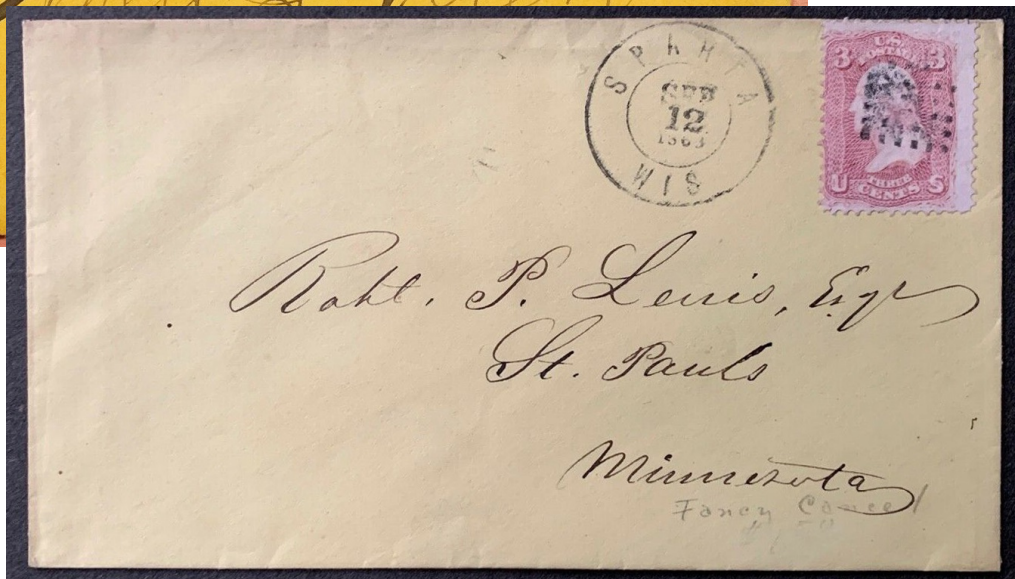 SPARTA
SEP
12
1863
WIS
3 U.S. 3
POSTAGE
U THREE S
CENTS
Robt. P. Lewis, Esqr
St. Pauls
Minnesota
Fancy Cancel